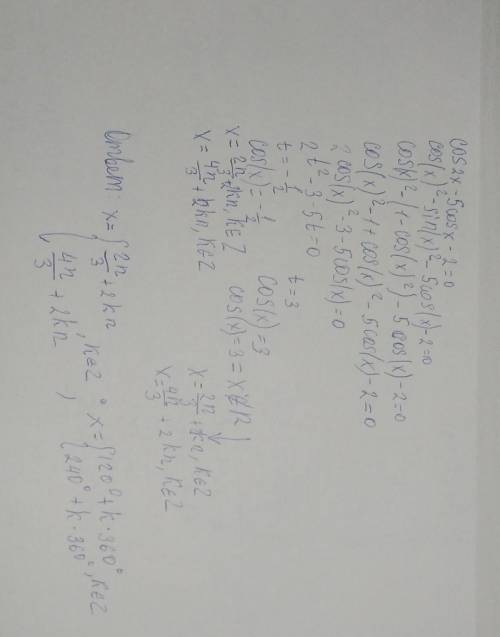 cos2x - 5cosx - 2 = 0
cos(x)² - sin(x)² - 5cos(x) - 2 = 0
cos(x)² - (1 - cos(x)²) - 5cos(x) - 2 = 0
cos(x)² - 1 + cos(x)² - 5cos(x) - 2 = 0
2cos(x)² - 3 - 5cos(x) = 0
2t² - 3 - 5t = 0
t = -1/2   t = 3
cos(x) = -1/2   cos(x) = 3
cos(x) = 3 = x∉R
x = 2π/3 + 2kπ, k∈Z
x = 4π/3 + 2kπ, k∈Z
x = 2π/3 + kπ, k∈Z
x = 4π/3 + 2kπ, k∈Z
Ответ: x = { 2π/3 + 2kπ
4π/3 + 2kπ , k∈Z
x = { 120° + k·360°
240° + k·360° , k∈Z